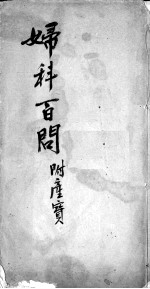 婦科百問
附產寶